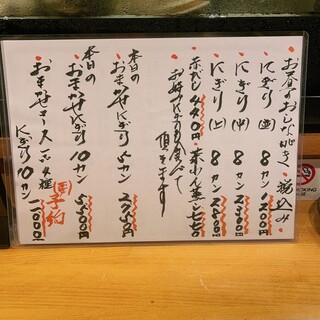 お昼のおしながき 税込み
にぎり(並) 8カン 1200円
にぎり(中) 8カン 2300円
にぎり(上) 8カン 2800円
赤だし 440円 茶わん蒸し 770
お好みにぎりも食べて
頂きます
本日の
おまかせにぎり 5カン
本日の
おまかせにぎり 10カン 5,500円
予約
おまかせコース
にぎり10カン 11,000円